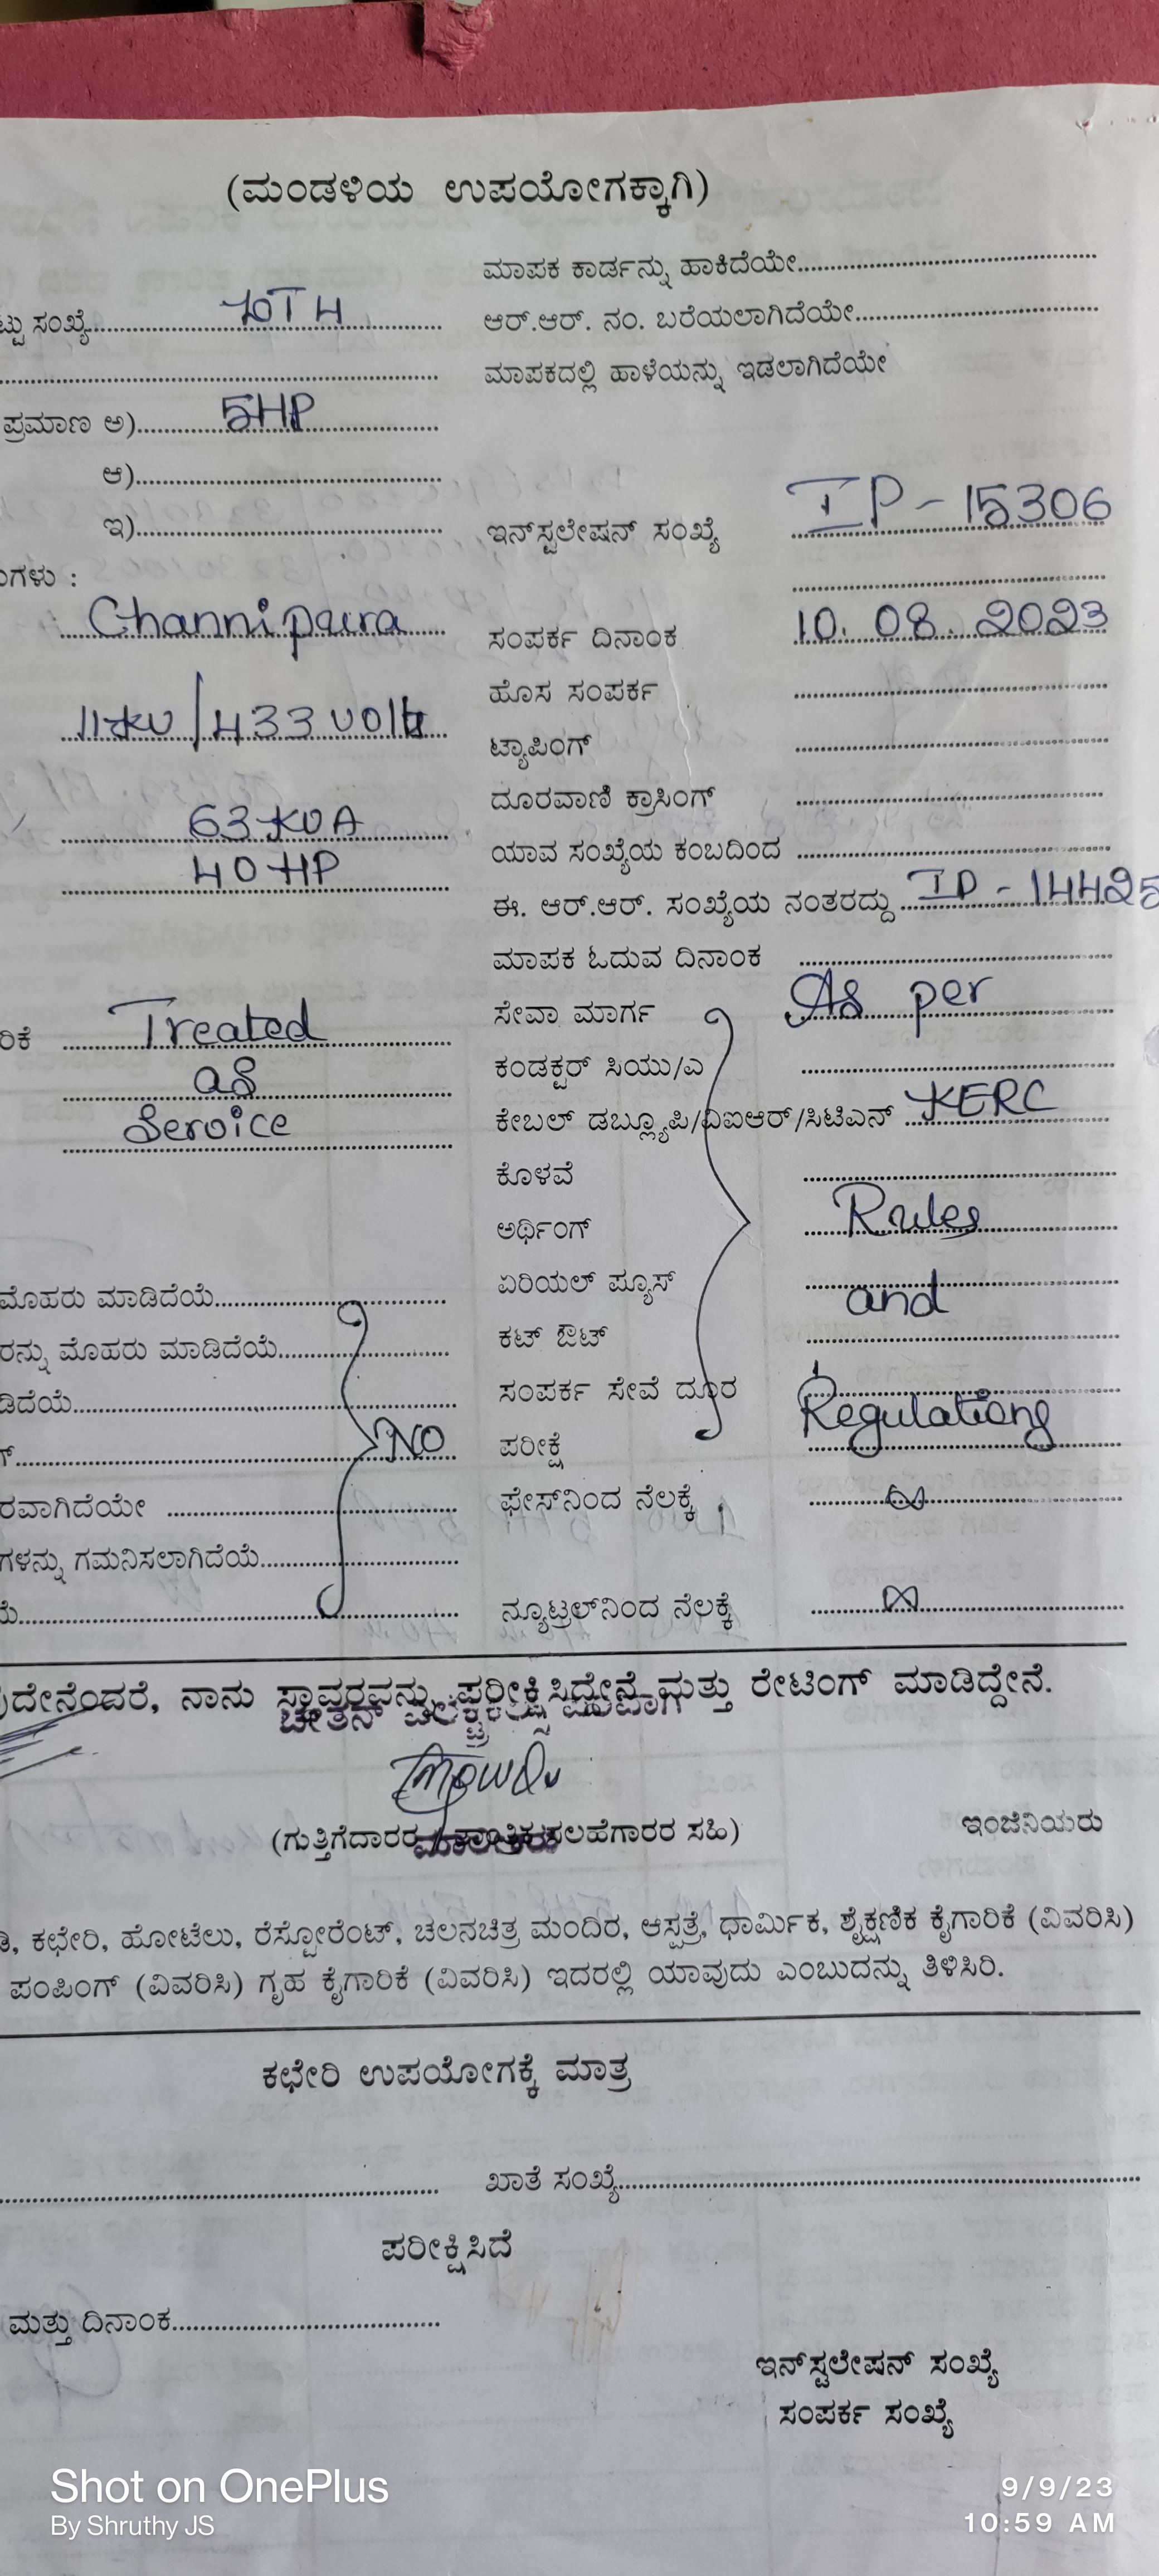 (ಮಂಡಳಿಯ ಉಪಯೋಗಕ್ಕಾಗಿ)
ಮಾಪಕ ಕಾರ್ಡನ್ನು ಹಾಕಿದೆಯೇ
ಟ್ಟು ಸಂಖ್ಯೆ
ಆರ್.ಆರ್. ನಂ. ಬರೆಯಲಾಗಿದೆಯೇ
ಮಾಪಕದಲ್ಲಿ ಹಾಳೆಯನ್ನು ಇಡಲಾಗಿದೆಯೇ
ಪ್ರಮಾಣ ಅ) 5HP
ಆ)
ಇ)
ಇನ್‌ಸ್ಟಲೇಷನ್ ಸಂಖ್ಯೆ IP-15306
ಗಳು :
Channipura
ಸಂಪರ್ಕ ದಿನಾಂಕ 10.08.2023
ಹೊಸ ಸಂಪರ್ಕ
11KV/433 volt
ಟ್ಯಾಪಿಂಗ್
ದೂರವಾಣಿ ಕ್ರಾಸಿಂಗ್
63 KVA
ಯಾವ ಸಂಖ್ಯೆಯ ಕಂಬದಿಂದ
40 HP
ಈ. ಆರ್.ಆರ್. ಸಂಖ್ಯೆಯ ನಂತರದ್ದು IP-14425
ಮಾಪಕ ಓದುವ ದಿನಾಂಕ
ರಿಕೆ Treated
ಸೇವಾ ಮಾರ್ಗ As per
as
ಕಂಡಕ್ಟರ್ ಸಿಯು/ಎ
Service
ಕೇಬಲ್ ಡಬ್ಲ್ಯೂಪಿ/ವಿಐಆರ್/ಸಿಟಿಎನ್ KERC
ಕೊಳವೆ
ಅರ್ಥಿಂಗ್ Rules
ಏರಿಯಲ್ ಪ್ಯೂಸ್ and
ಮೊಹರು ಮಾಡಿದೆಯೆ
ಕಟ್ ಔಟ್
ರನ್ನು ಮೊಹರು ಮಾಡಿದೆಯೆ
ಸಂಪರ್ಕ ಸೇವೆ ದೂರ Regulations
ಡಿದೆಯೆ
ಪರೀಕ್ಷೆ
NO
ಫೇಸ್‌ನಿಂದ ನೆಲಕ್ಕೆ ∞
ರವಾಗಿದೆಯೇ
ಗಳನ್ನು ಗಮನಿಸಲಾಗಿದೆಯೆ
ನ್ಯೂಟ್ರಲ್‌ನಿಂದ ನೆಲಕ್ಕೆ ∞
ದೇನೆಂದರೆ, ನಾನು ಸ್ಥಾವರವನ್ನು ಪರೀಕ್ಷಿಸಿದ್ದೇನೆ ಮತ್ತು ರೇಟಿಂಗ್ ಮಾಡಿದ್ದೇನೆ.
(ಗುತ್ತಿಗೆದಾರರ / ತಾಂತ್ರಿಕ ಸಲಹೆಗಾರರ ಸಹಿ)
ಇಂಜಿನಿಯರು
ಡಿ, ಕಛೇರಿ, ಹೋಟೆಲು, ರೆಸ್ಟೋರೆಂಟ್, ಚಲನಚಿತ್ರ ಮಂದಿರ, ಆಸ್ಪತ್ರೆ, ಧಾರ್ಮಿಕ, ಶೈಕ್ಷಣಿಕ ಕೈಗಾರಿಕೆ (ವಿವರಿಸಿ)
ಪಂಪಿಂಗ್ (ವಿವರಿಸಿ) ಗೃಹ ಕೈಗಾರಿಕೆ (ವಿವರಿಸಿ) ಇದರಲ್ಲಿ ಯಾವುದು ಎಂಬುದನ್ನು ತಿಳಿಸಿರಿ.
ಕಛೇರಿ ಉಪಯೋಗಕ್ಕೆ ಮಾತ್ರ
ಖಾತೆ ಸಂಖ್ಯೆ
ಪರೀಕ್ಷಿಸಿದೆ
ಮತ್ತು ದಿನಾಂಕ
ಇನ್‌ಸ್ಟಲೇಷನ್ ಸಂಖ್ಯೆ
ಸಂಪರ್ಕ ಸಂಖ್ಯೆ
Shot on OnePlus
By Shruthy JS
9/9/23
10:59 AM